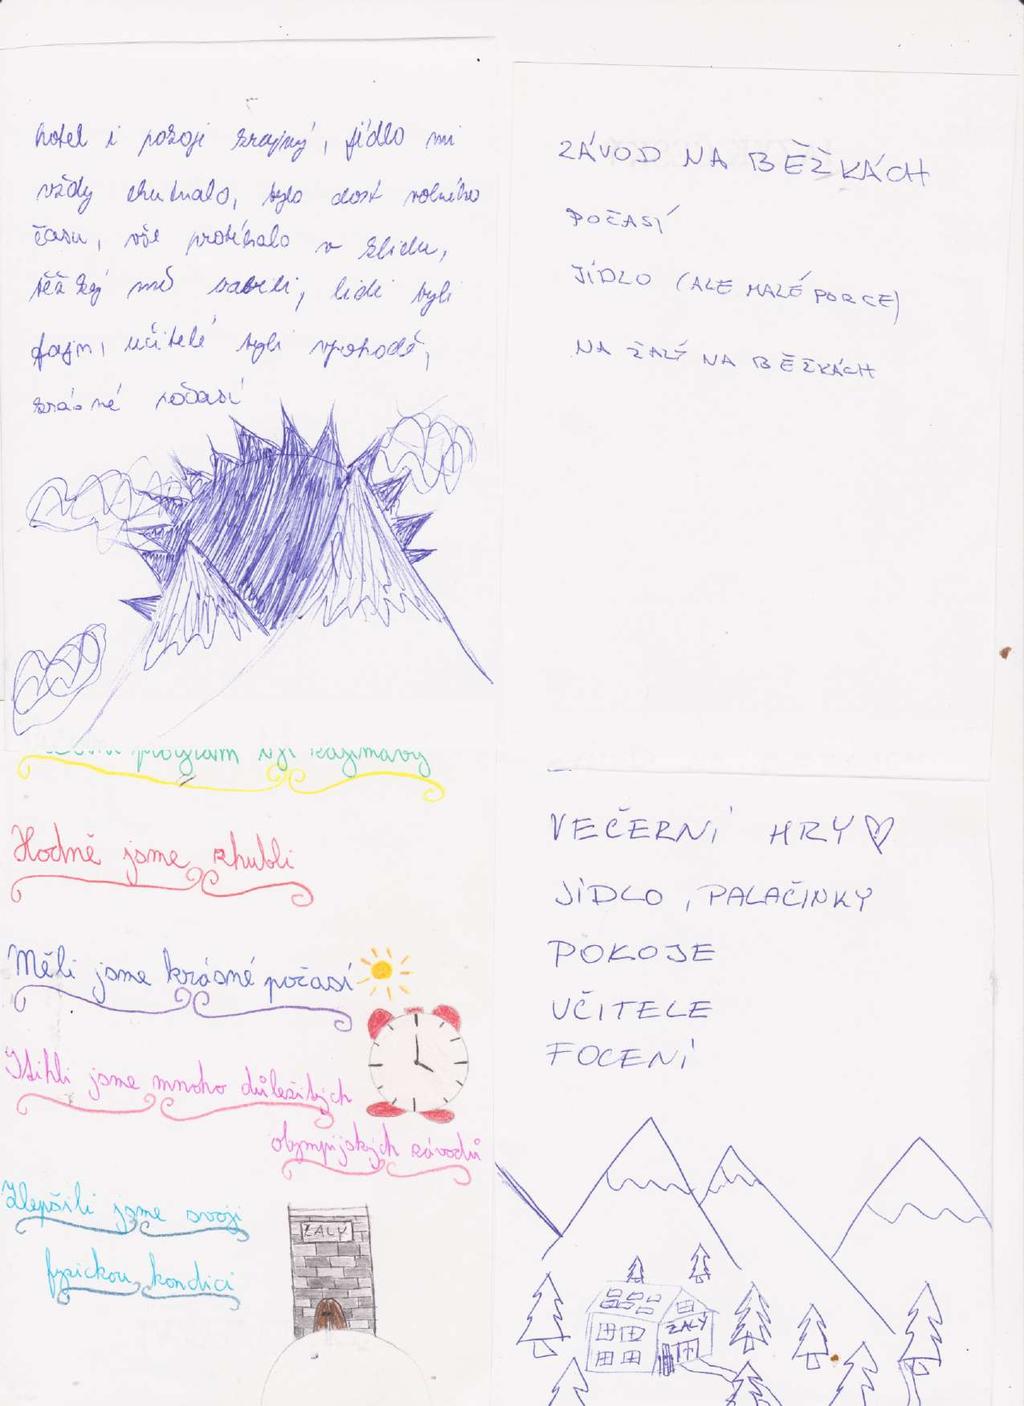 hotel i pokoji krajný, jídlo mi
vždy chutnalo, bylo dost volného
času, vše probíhalo v klidu,
běžky mě bavili, lidi byli
fajn, učitelé byli vpohodě,
krásné počasí
ZÁVOD NA BĚŽKÁCH
POČASÍ
JÍDLO (ALE MALÉ PORCE)
NA ŽALÝ NA BĚŽKÁCH
program byl zajímavý
Hodně jsme zhubli
Měli jsme krásné počasí
Stihli jsme mnoho důležitých
olympijských závodů
Zlepšili jsme svoji
fyzickou kondici
ŽALÝ
VEČERNÍ HRY
JÍDLO, PALAČINKY
POKOJE
UČITELE
FOCENÍ
ŽALÝ